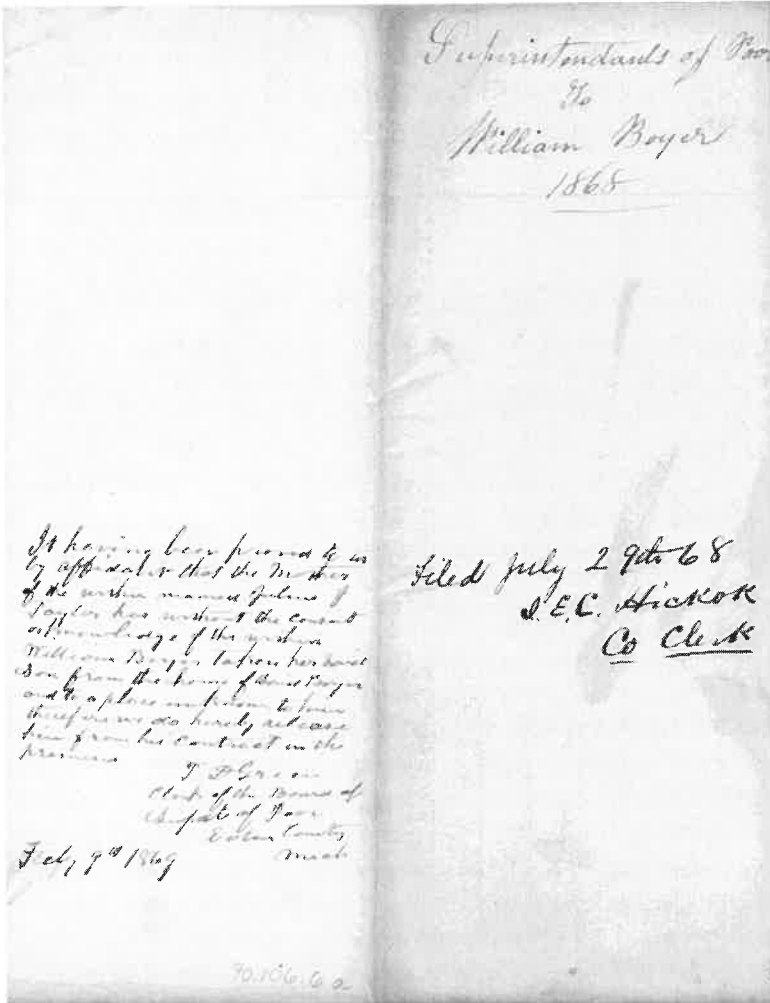 Superintendants of Poor
To
William Boyer
1868
Filed July 29th 68
I. E. C. Hickok
Co Clerk
It having been proved to us
by affidavit that the Mother
of the within named Julius J
Taylor has without the consent
or knowledge of the within
William Boyer taken her said
Son from the home of said Boyer
and to a place unknown to him
therefore we do hereby release
him from his contract in the
premises
T P Green
Clerk of the Board of
Supts of Poor
Eaton County
Mich
Feby 9th 1869
70.106.6a